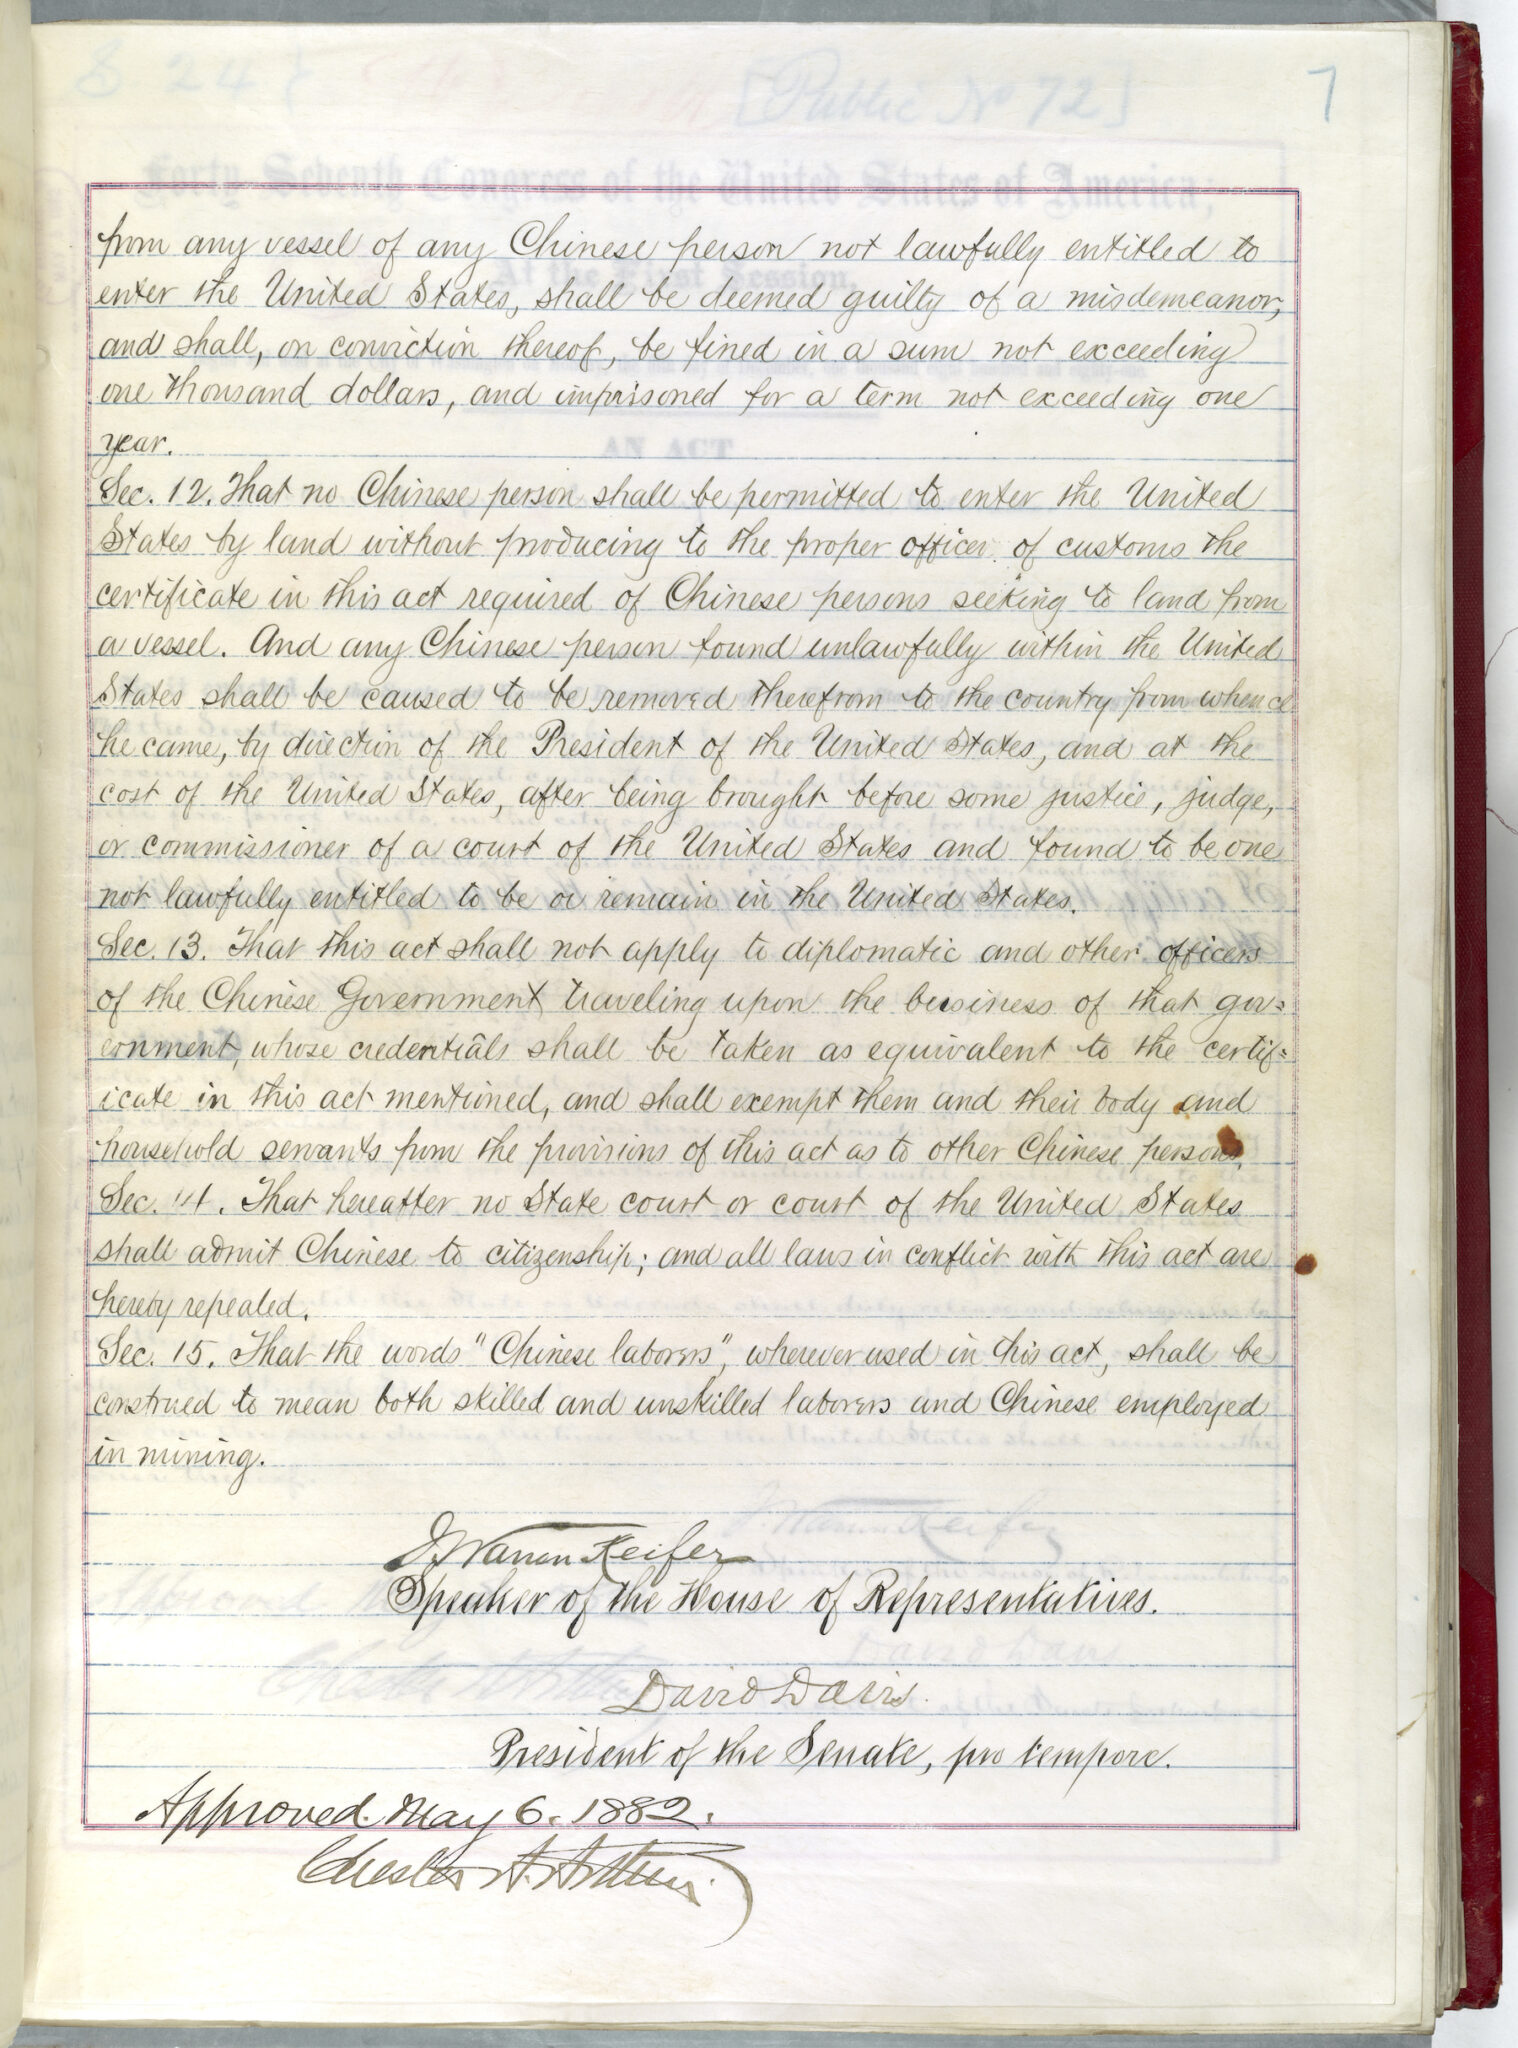 7
from any vessel of any Chinese person not lawfully entitled to
enter the United States, shall be deemed guilty of a misdemeanor,
and shall, on conviction thereof, be fined in a sum not exceeding
one thousand dollars, and imprisoned for a term not exceeding one
year.
Sec. 12. That no Chinese person shall be permitted to enter the United
States by land without producing to the proper officer of customs the
certificate in this act required of Chinese persons seeking to land from
a vessel. And any Chinese person found unlawfully within the United
States shall be caused to be removed therefrom to the country from whence
he came, by direction of the President of the United States, and at the
cost of the United States, after being brought before some justice, judge,
or commissioner of a court of the United States and found to be one
not lawfully entitled to be or remain in the United States.
Sec. 13. That this act shall not apply to diplomatic and other officers
of the Chinese Government traveling upon the business of that gov=
ernment, whose credentials shall be taken as equivalent to the certif=
icate in this act mentioned, and shall exempt them and their body and
household servants from the provisions of this act as to other Chinese persons.
Sec. 14. That hereafter no State court or court of the United States
shall admit Chinese to citizenship; and all laws in conflict with this act are
hereby repealed.
Sec. 15. That the words "Chinese laborers", wherever used in this act, shall be
construed to mean both skilled and unskilled laborers and Chinese employed
in mining.
J. Warren Keifer
Speaker of the House of Representatives.
David Davis.
President of the Senate, pro tempore.
Approved May 6. 1882.
Chester A. Arthur.